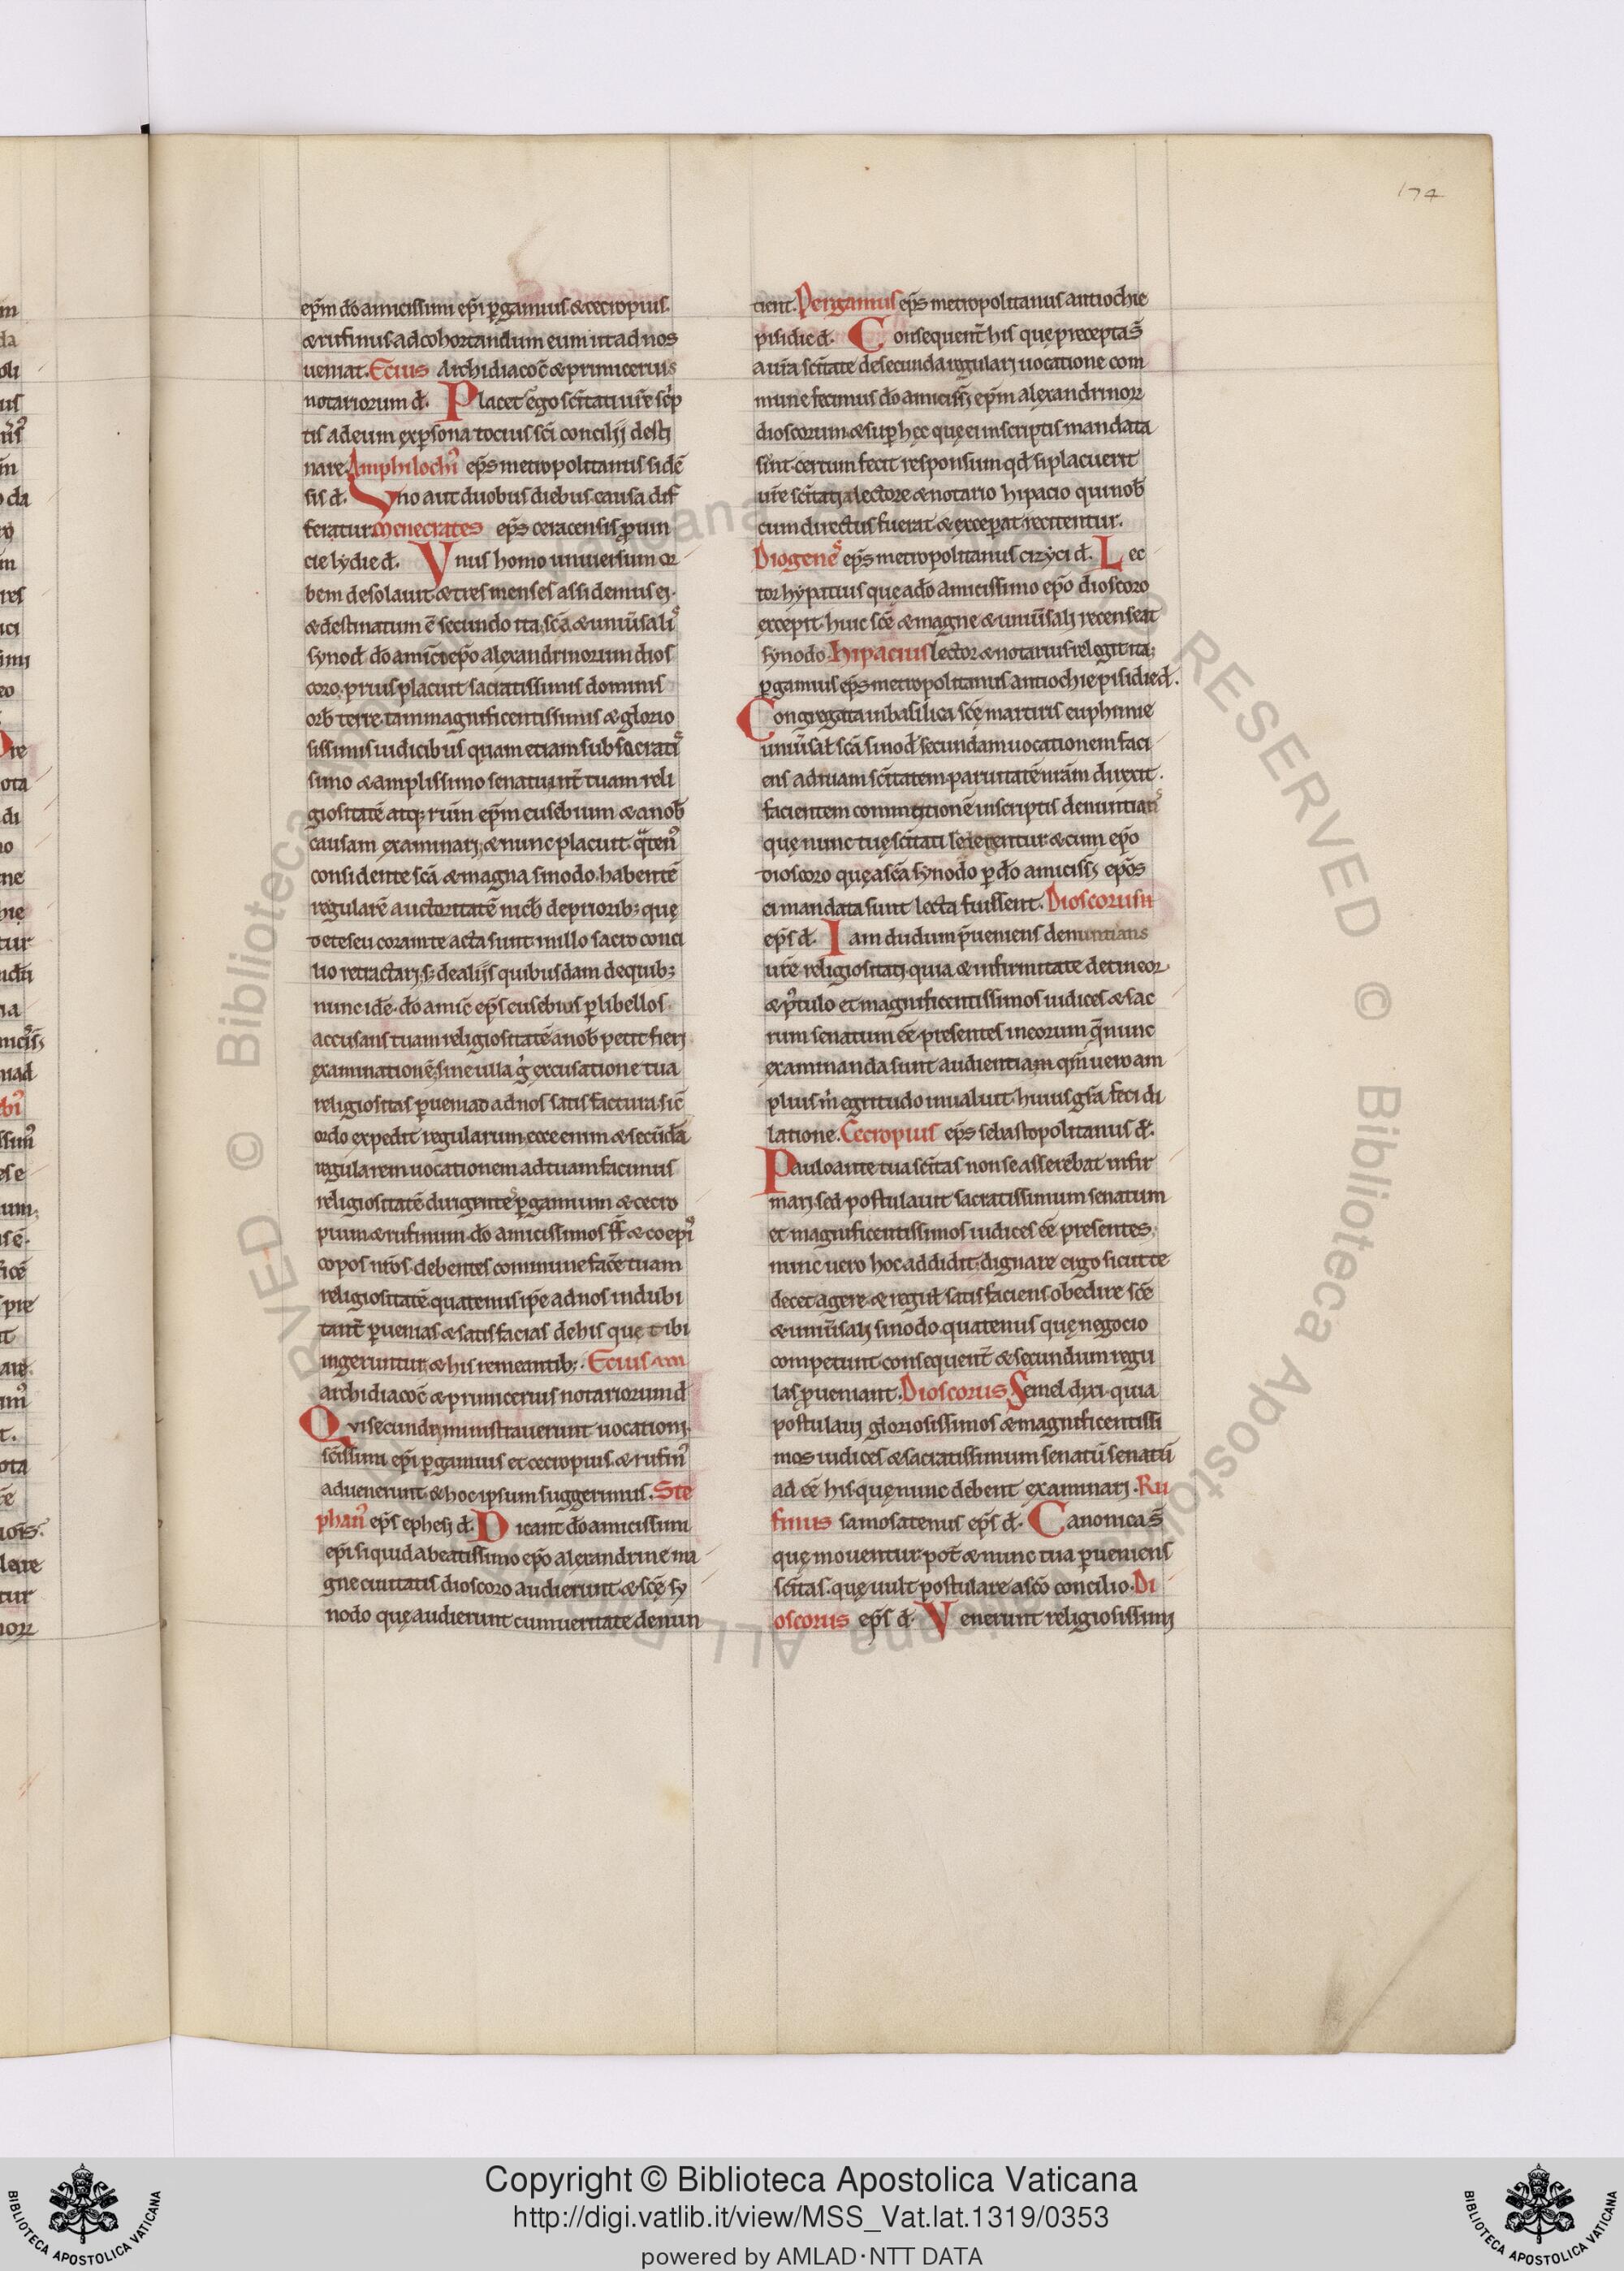 174
ep̄m do amicissimi ep̄i ꝑgamius. & cecropius.
& rufinus. ad cohortandum eum ut ad nos
ueniat. Ecius Archidiacoc̄ & primicerius
notariorum d̄. Placet ego sc̄itati ur̄e sc̄p
tis ad eum ex ꝑsona tocius sc̄i concilij desti
nare. Amphilochi᷒ ep̄s metropolitanus sidē
sis d̄. Vno aut duobus diebus causa dif
feratur. Menecrates ep̄s ceracensis ꝓuin
cie lydie d̄. Vnus homo uniuersum or
bem desolauit. & tres menses assidemus ei.
& destinatum ē secundo ita. sc̄a & uniūsali᷒
synod̄ do amic̄ ep̄o alexandrinorum dios
coro. prius placuit sacratissimis dominis
orb̄ terre. tam magnificentissimis & glorio
sissimis iudicibus quam etiam sub sacrati᷒
simo & amplissimo senatu int̄ tuam reli
giositatē atq; rūm ep̄m eusebium & a nob̄
causam examinari. & nunc placuit q̄ten᷒
considente sc̄a & magna sinodo. habentē
regularē auctoritatē nich̄ de priorib; quę
de te seu coram te acta sunt. in illo sacro conci
lio retractari. s; de alijs quibusdam de quib;
nunc idē. do amic̄ ep̄s eusebius ꝑ libellos.
accusans tuam religiositatē a nob̄ petit fieri
examinationē. sine ulla g̊ excusatione tua
religiositas ꝑueniad ad nos satis factura sic̄
ordo expedit regularum. ecce enim & secūdā
regularem uocationem ad tuam facimus
religiositatē dirigente᷒ ꝑgamium & cecro
pium & rufinum. do amicissimos ff̄ & coepi᷒
copos nr̄os. debentes commune facē tuam
religiositatē quatenus ip̄e ad nos indubi
tant̄ ꝑuenias & satis facias de his quę tibi
ingeruntur. & his remeantib;. Ecius
archidiacoc̄ & primicerius notariorum d̄
Qui secundę ministrauerunt uocationi.
sc̄issimi ep̄i ꝑgamius et cecropius. & rufin᷒
aduenerunt & hoc ipsum suggerimus. Ste
phan᷒ ep̄s ephesi d̄. Dicant do amicissimi
ep̄i siquid a beatissimo ep̄o alexandrine ma
gne ciuitatis dioscoro audierunt. & sc̄ę sy
nodo quę audierunt cum ueritate denun
tient. Pergamius ep̄s metropolitanus antiochie
pisidie d̄. Consequent̄ his que precepta s̄
a ur̄a sc̄itate de secunda regulari uocatione com
mune fecimus do amiciss; ep̄m alexandrinorꝝ
dioscorum. & suꝑ hęc quę ei in scriptis mandata
sint. certum fecit responsum qd̄ si placuerit
ur̄e sc̄itati a lectore & notario hipacio qui nob̄
cum directus fuerat & exceperat recitentur.
Diogene᷒ ep̄s metropolitanus cizyci d̄. Lec
tor hypatius quę a do amicissimo ep̄o dioscoro
excepit. huic sc̄ę & magne & uniūsali recenseat
synodo. Hipacius lector & notarius relegit ita;
ꝑgamius ep̄s metropolitanus antiochie pisidie d̄.
Congregata in basilica sc̄ę martiris euphimie
uniūsał sc̄a sinod̄ secundam uocationem faci
ens ad tuam sc̄itatem. paruitatē nr̄am direxit.
facientem commotionē in scriptis denuntian᷒
quę nunc tuę sc̄itati legerentur. & cum ep̄o
dioscoro quę a sc̄a synodo ꝑ do amiciss; ep̄os
ei mandata sunt lecta fuissent. Dioscorus
ep̄s d̄. Iam dudum p̄ueniens denuntians
ur̄e religiositati. quia & infirmitate detineor.
& p̊tulo et magnificentissimos iudices & sac
rum senatum eē. presentes in eorum q̄ nunc
examinanda sunt audientiam. qm̄ uero am
plius m̊ egritudo inualuit. huius gr̄a feci di
latione. Cecropius ep̄s sebastopolitanus d̄.
Paulo ante tua sc̄itas non se asserebat infir
mari. sed. postulauit sacratissimum senatum
et magnificentissimos iudices eē presentes.
nunc uero hoc addidit. dignare ergo sicut te
decet agere & reguł satis faciens obedire sc̄ę
& uniūsali sinodo. quatenus quę negocio
competunt consequent̄ & secundum regu
las ꝑueniant. Dioscorus Semel dixi. quia
postulaui gloriosissimos & magnificentissi
mos iudices & sacratissimum senatū senatū
ad eē his. quę nunc debent examinari. Ru
finus samosatenus ep̄s d̄. Canonica s̄
quę mouentur. pot̄ & nunc tua ꝑueniens
sc̄itas. quę uult postulare a sc̄o concilio. Di
oscorus ep̄s d̄. Venerunt religiosissimi
Copyright © Biblioteca Apostolica Vaticana
http://digi.vatlib.it/view/MSS_Vat.lat.1319/0353
powered by AMLAD·NTT DATA